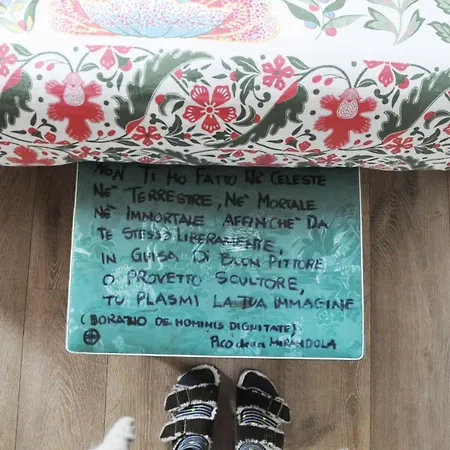 NON TI HO FATTO NE' CELESTE
NE' TERRESTRE, NE' MORTALE
NE' IMMORTALE AFFINCHE' DA
TE STESSO LIBERAMENTE,
IN GUISA DI BUON PITTORE
O PROVETTO SCULTORE,
TU PLASMI LA TUA IMMAGINE
(OORATIO DE HOMINIS DIGNITATE)
PICO della MIRANDOLA